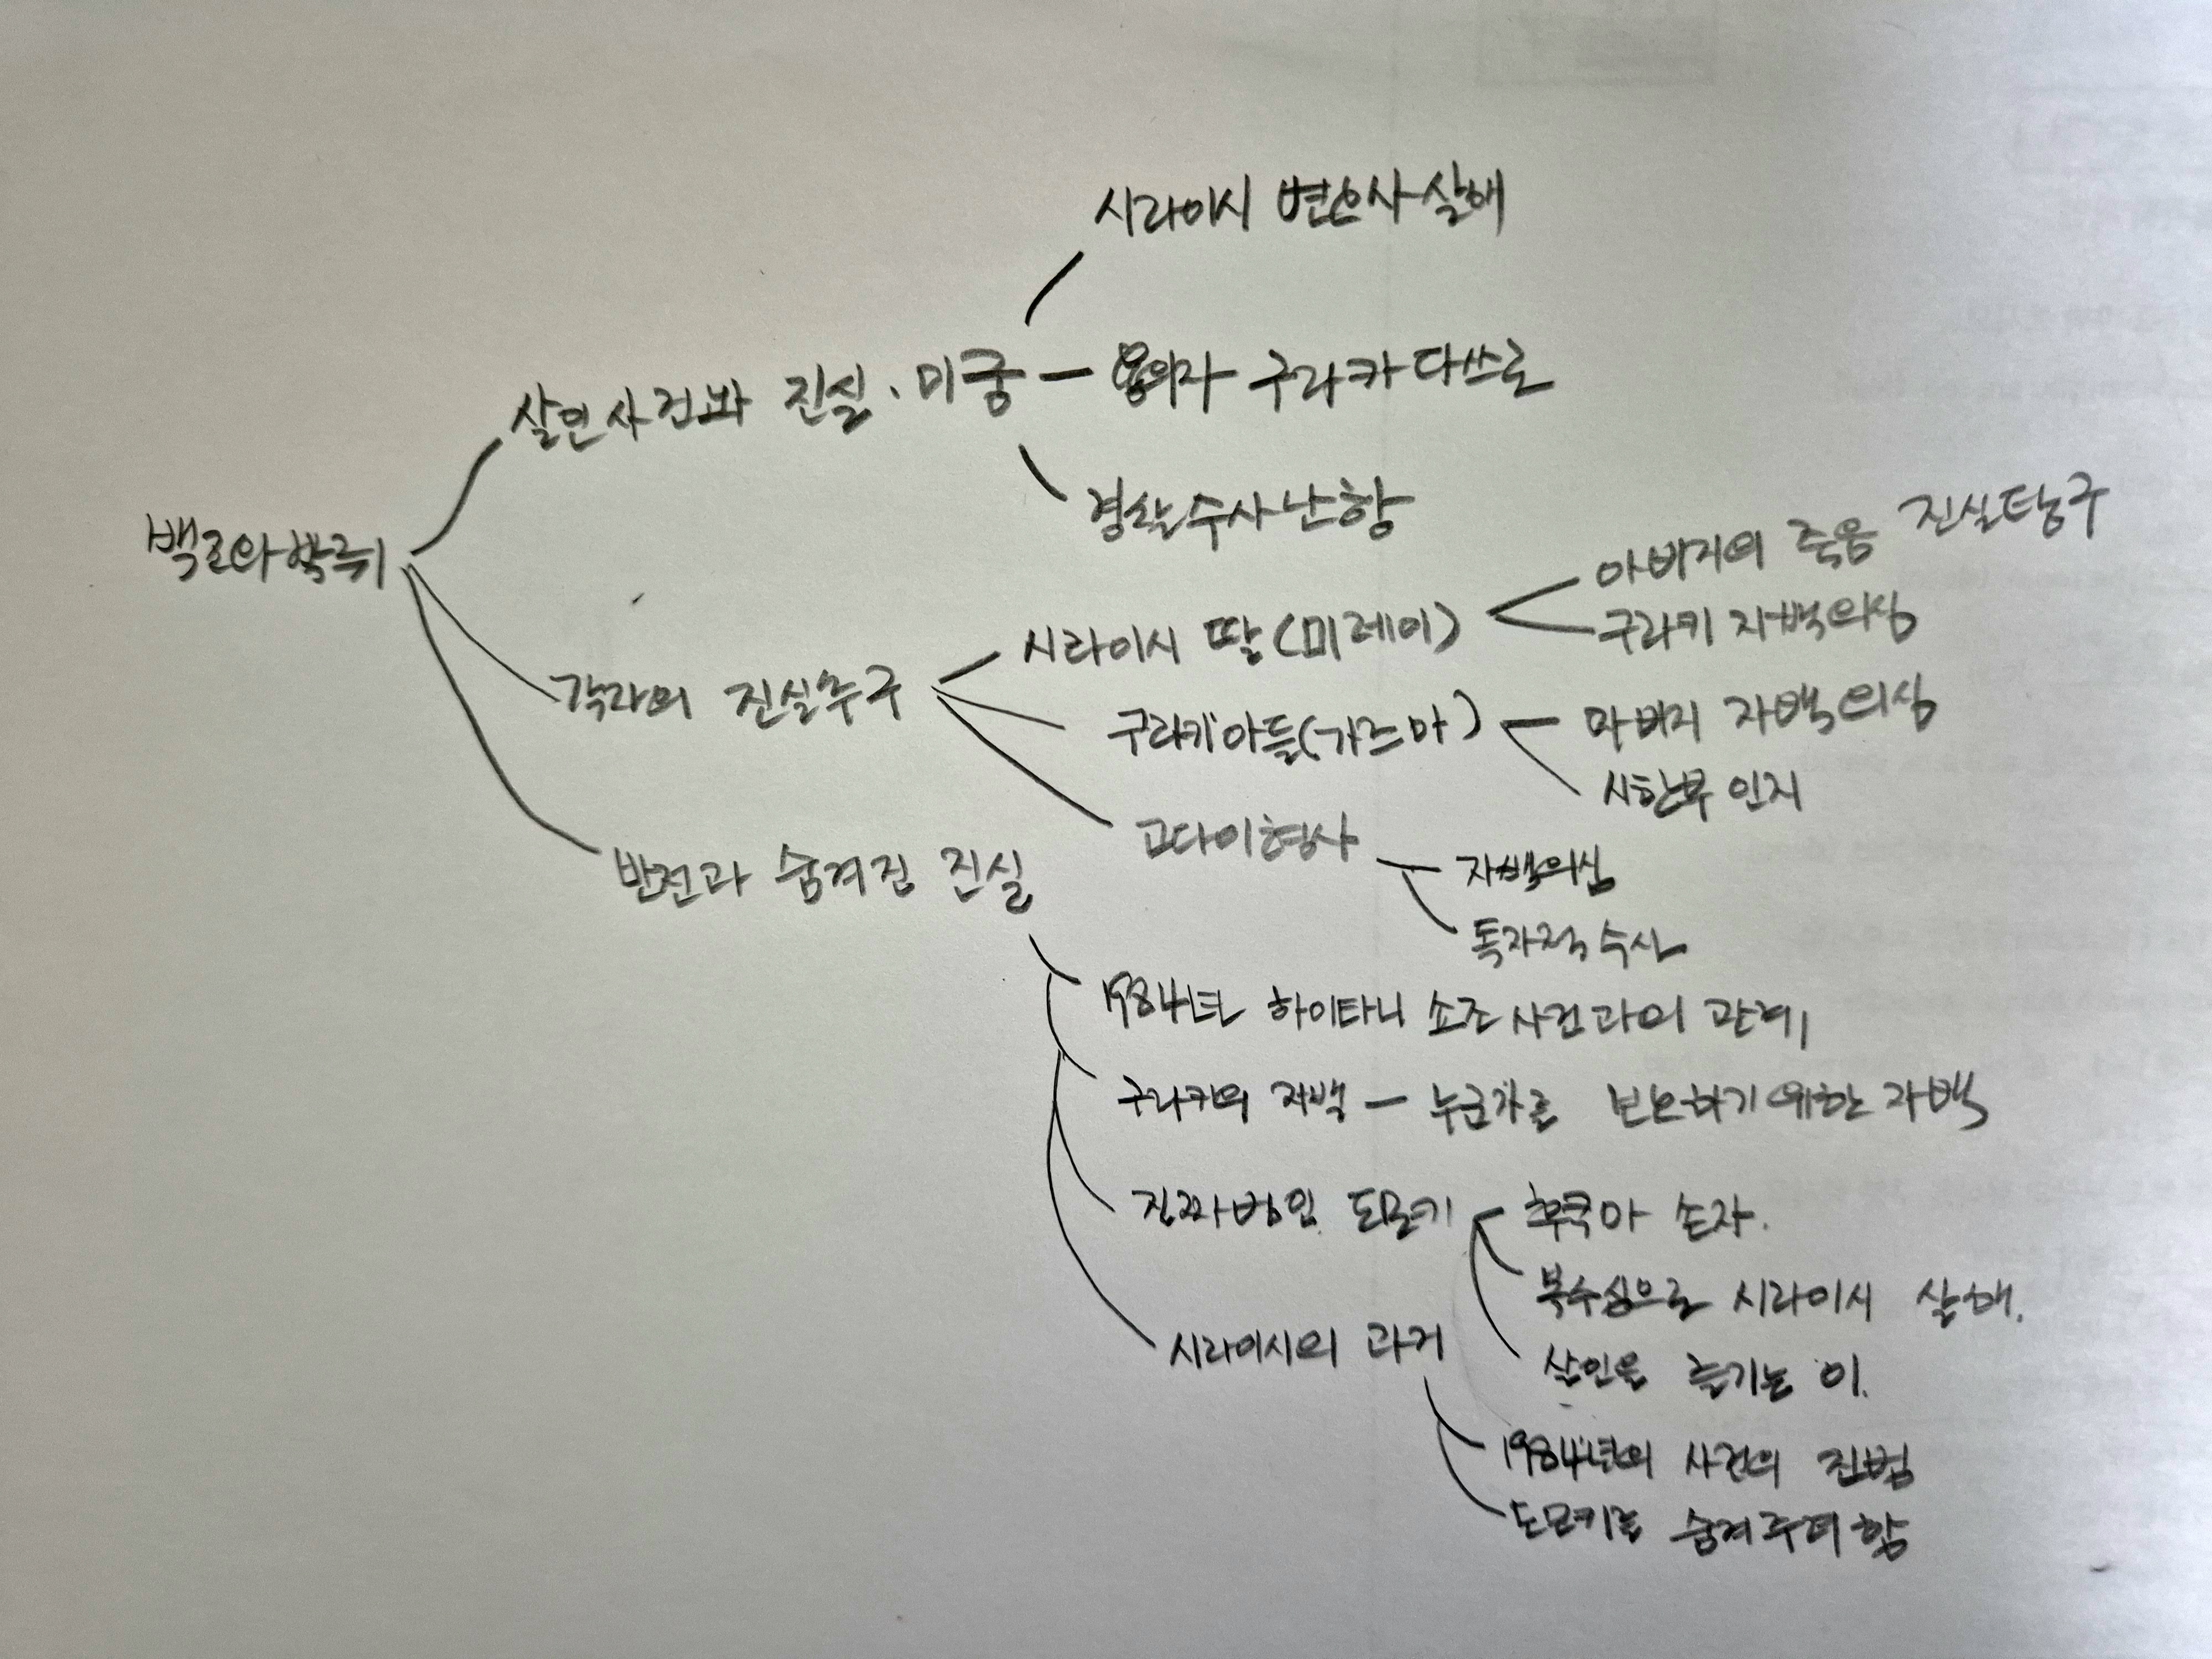 시라이시 변호사 살해
살인사건과 진실·미궁 — 용의자 구라카 다쓰로
경찰 수사 난항
백로와 박쥐
아버지의 죽음 진실탐구
시라이시 딸(미레이)
구라키 자백의심
각자의 진실추구
구라키 아들(가즈마)
아버지 자백의심
시한부 인지
고다이형사
자백의심
반전과 숨겨진 진실
독자적 수사
1984년 하이타니 쇼조 사건과의 관계
구라키의 자백 — 누군가를 보호하기 위한 자백
진짜범인 도모키
후쿠마 손자.
복수심으로 시라이시 살해.
시라이시의 과거
살인을 즐기는 이.
1984년의 사건의 진범
도모키를 숨겨주려 함